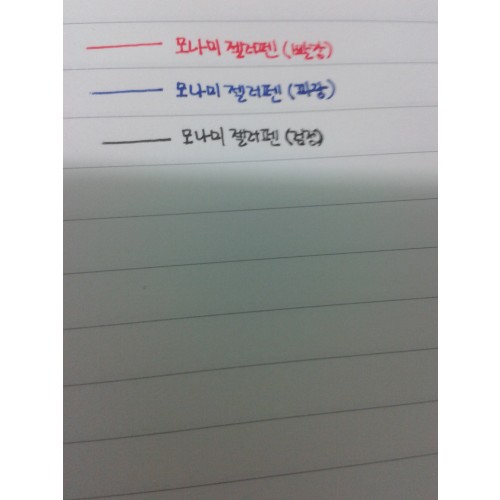 모나미 젤러펜 (빨강)
모나미 젤러펜 (파랑)
모나미 젤러펜 (검정)